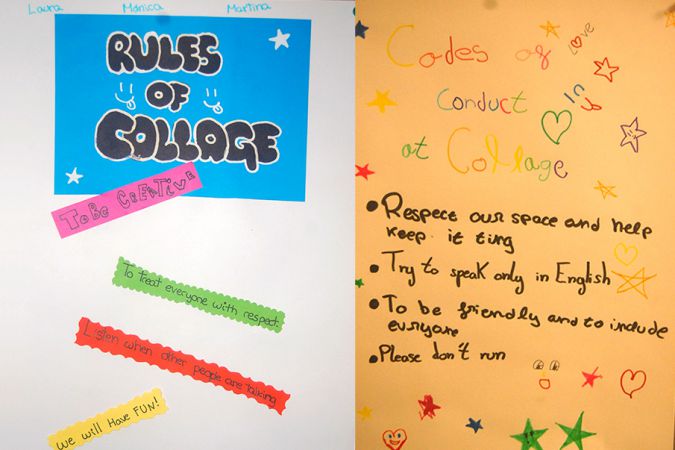 Laura Mónica Martina
RULES
OF
COLLAGE
TO BE CREATIVE
To treat everyone with respect.
Listen when other people are talking
we will Have FUN!
Codes of
Love
Conduct
at Collage
Respect our space and help
keep it ting
Try to speak only in English
To be friendly and to include
everyone
Please don't run